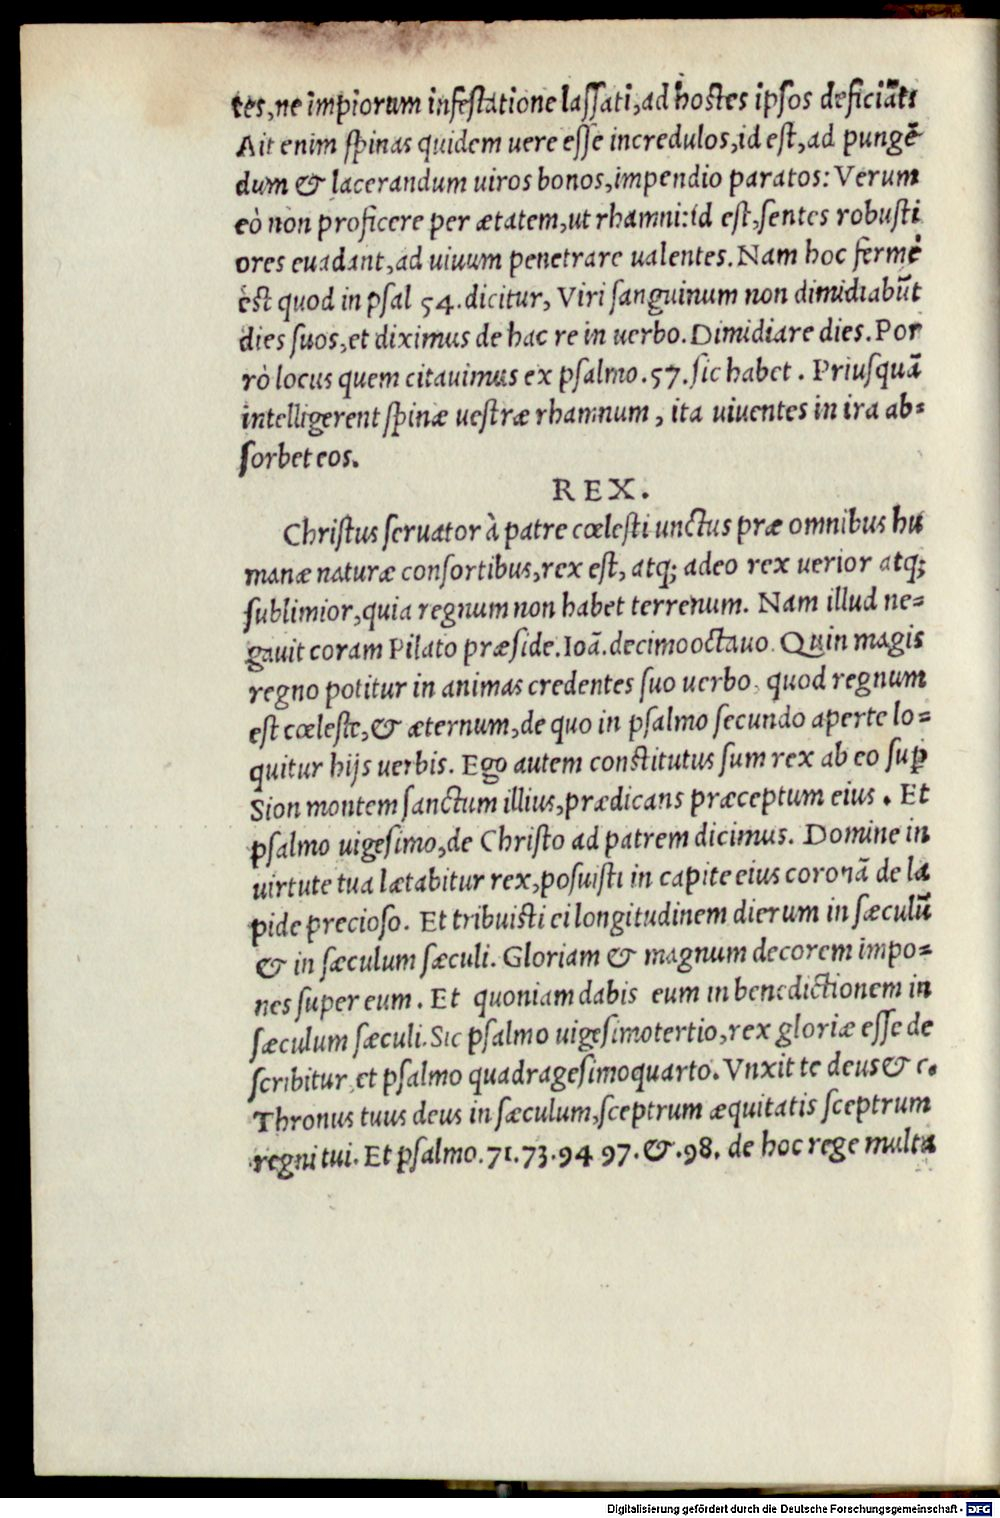 tes,ne impiorum infestatione lassati,ad hostes ipsos deficiãt:
Ait enim spinas quidem uere esse incredulos,id est,ad pungẽ
dum & lacerandum uiros bonos,impendio paratos: Verum
eò non proficere per ætatem,ut rhamni:id est,sentes robusti
ores euadant,ad uiuum penetrare ualentes.Nam hoc fermè
est quod in psal 54.dicitur, Viri sanguinum non dimidiabũt
dies suos,et diximus de hac re in uerbo.Dimidiare dies.Por
rò locus quem citauimus ex psalmo.57.sic habet. Priusquã
intelligerent spinæ uestræ rhamnum, ita uiuentes in ira ab=
sorbet eos.
REX.
Christus seruator à patre cœlesti unctus præ omnibus hu
manæ naturæ consortibus,rex est, atq; adeo rex uerior atq;
sublimior,quia regnum non habet terrenum. Nam illud ne=
gauit coram Pilato præside.Ioã.decimooctauo. Quin magis
regno potitur in animas credentes suo uerbo, quod regnum
est cœleste,& æternum,de quo in psalmo secundo aperte lo=
quitur hijs uerbis. Ego autem constitutus sum rex ab eo sup̱
Sion montem sanctum illius,prædicans præceptum eius. Et
psalmo uigesimo,de Christo ad patrem dicimus. Domine in
uirtute tua lætabitur rex,posuisti in capite eius coronã de la
pide precioso. Et tribuisti ei longitudinem dierum in sæculũ
& in sæculum sæculi. Gloriam & magnum decorem impo=
nes super eum. Et quoniam dabis eum in benedictionem in
sæculum sæculi.Sic psalmo uigesimotertio,rex gloriæ esse de
scribitur,et psalmo quadragesimoquarto. Vnxit te deus& c.
Thronus tuus deus in sæculum,sceptrum æquitatis sceptrum
regni tui. Et psalmo.71.73.94 97.&.98. de hoc rege multa
Digitalisierung gefördert durch die Deutsche Forschungsgemeinschaft - DFG